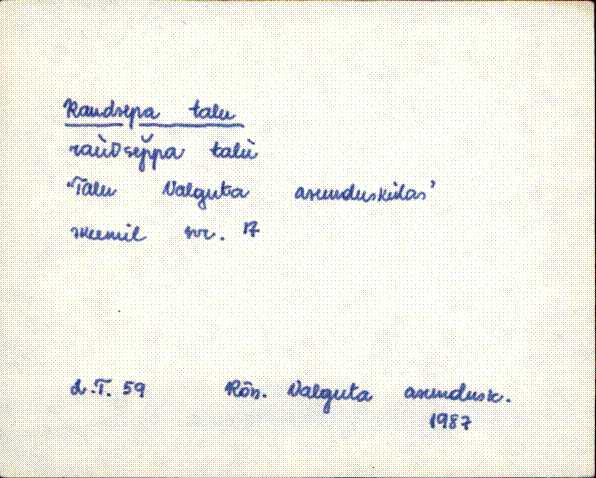 Raudsepa talu
raùᴅsep̆pa talù
"Talu Valguta asunduskülas"
skeemil nr. 17
L.T. 59 Rõn. Valguta asundusk.
1987